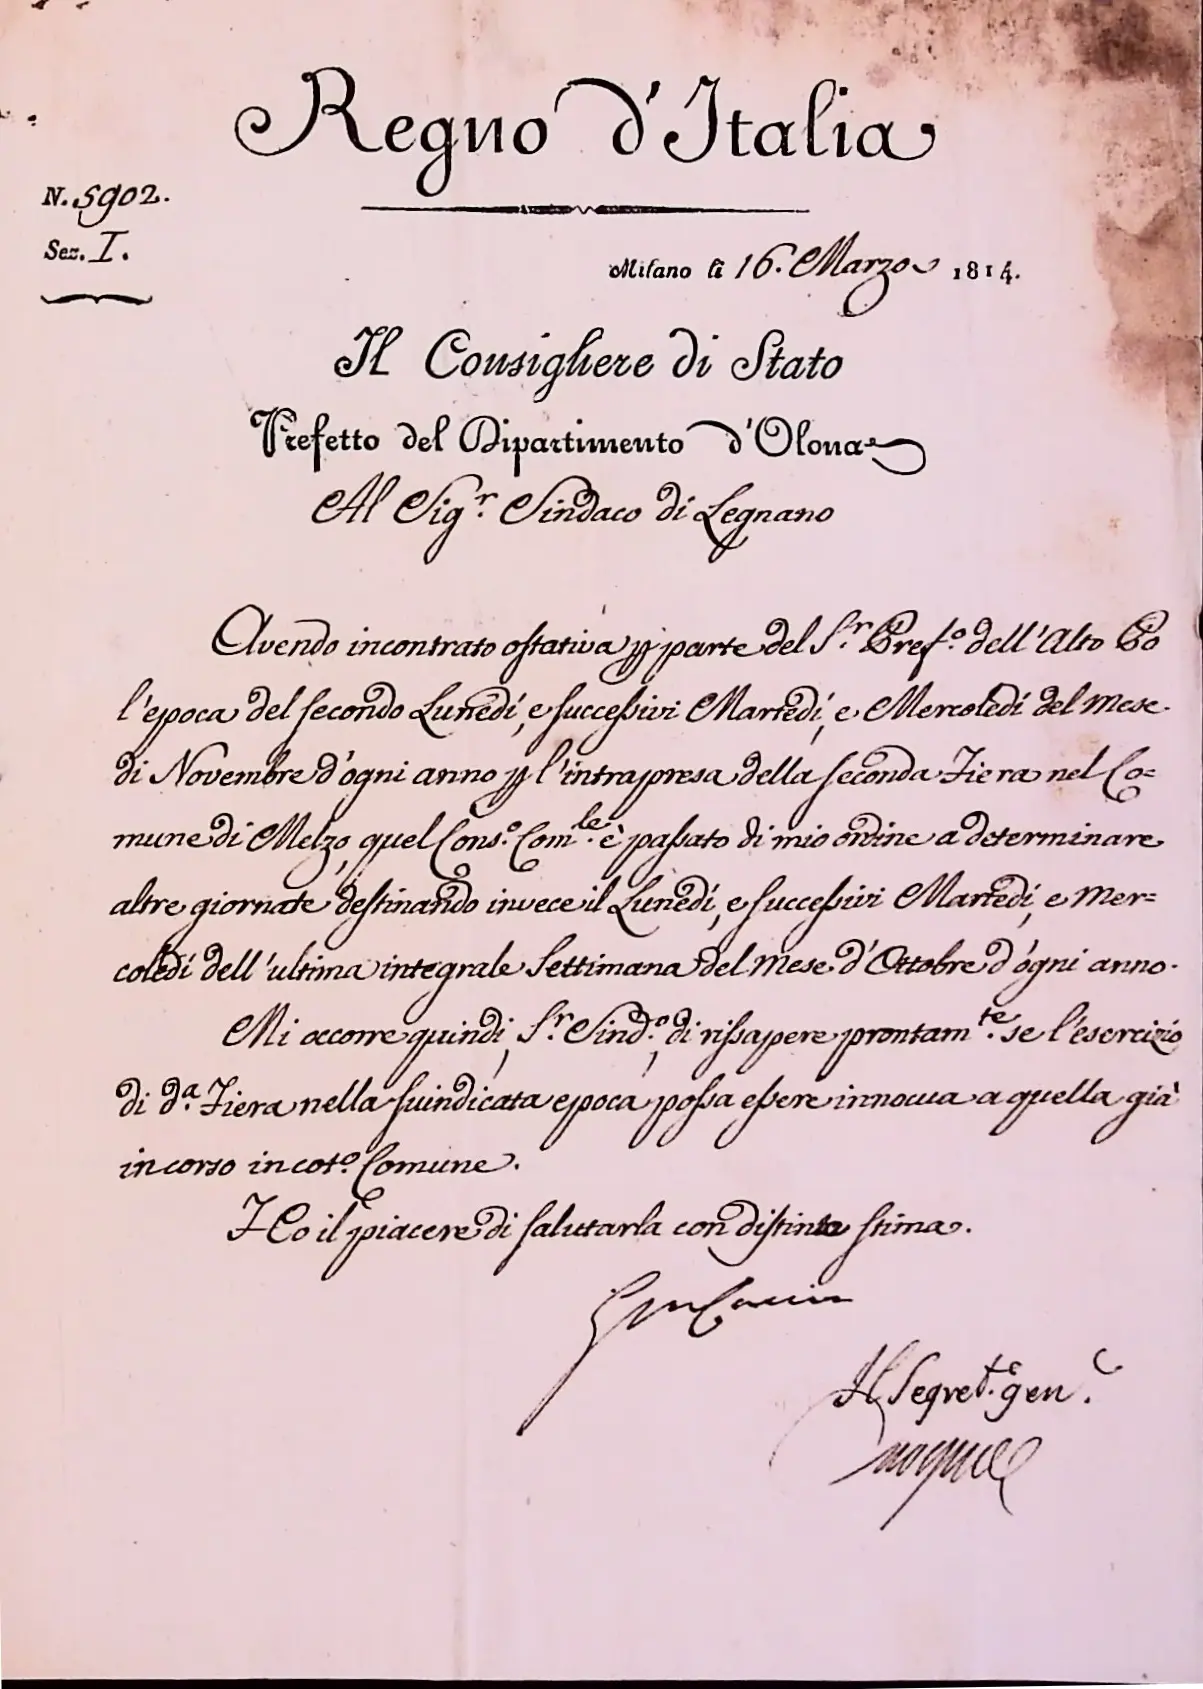 Regno d'Italia
N. 5902.
Sez. I.
Milano li 16. Marzo 1814.
Il Consigliere di Stato
Prefetto del Dipartimento d'Olona
Al Sig.r Sindaco di Legnano
Avendo incontrato ostativa p parte del S.r Pref.o dell'Alto Po
l'epoca del secondo Lunedí, e successivi Martedí, e Mercoledí del Mese
di Novembre d'ogni anno p l'intrapresa della seconda Fiera nel Co=
mune di Melzo, quel Cons.o Com.le è passato di mio ordine a determinare
altre giornate destinando invece il Lunedí, e successivi Martedí, e Mer=
coledí dell'ultima integrale Settimana del Mese d'Ottobre d'ogni anno.
Mi occorre quindi, S.r Sind.o, di rissapere prontam.te se l'esercizio
di d.a Fiera nella suindicata epoca possa essere innocua a quella già
in corso in cot.o Comune.
Ho il piacere di salutarla con distinta stima.
Il Segret.o gen.e